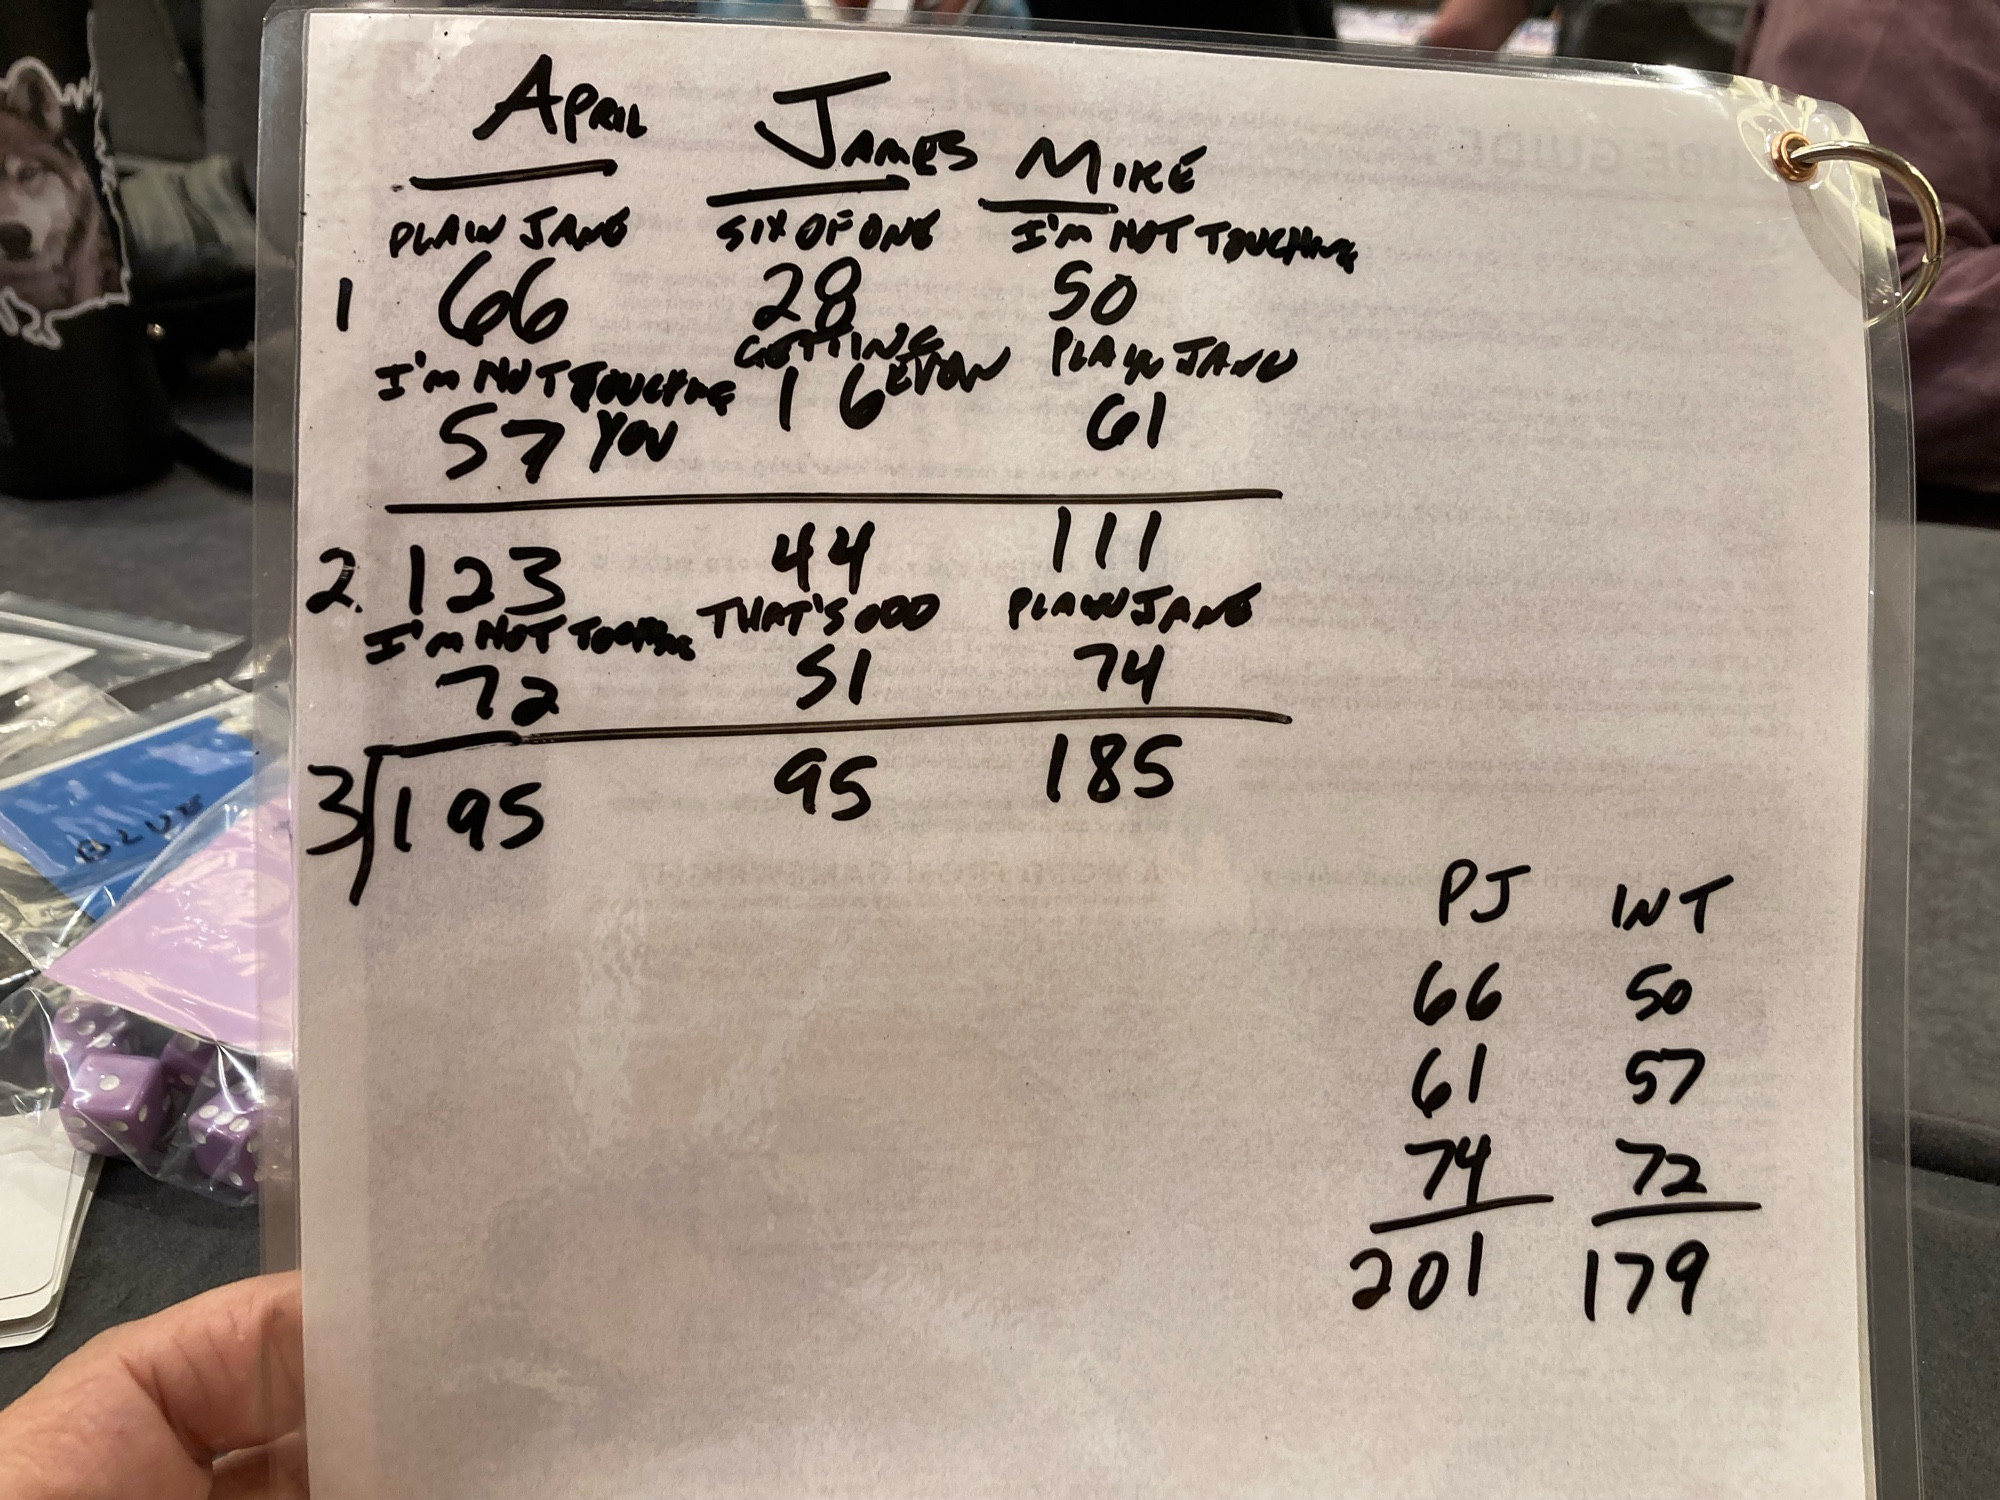 APRIL JAMES MIKE
PLAIN JANE SIX OF ONE I'M NOT TOUCHING
1 66 28 50
I'M NOT TOUCHING YOU GETTING EVEN PLAIN JANE
57 16 61
2. 123 44 111
I'M NOT TOUCHING THAT'S ODD PLAIN JANE
72 51 74
3 195 95 185
PJ INT
66 50
61 57
74 72
201 179
BLUE